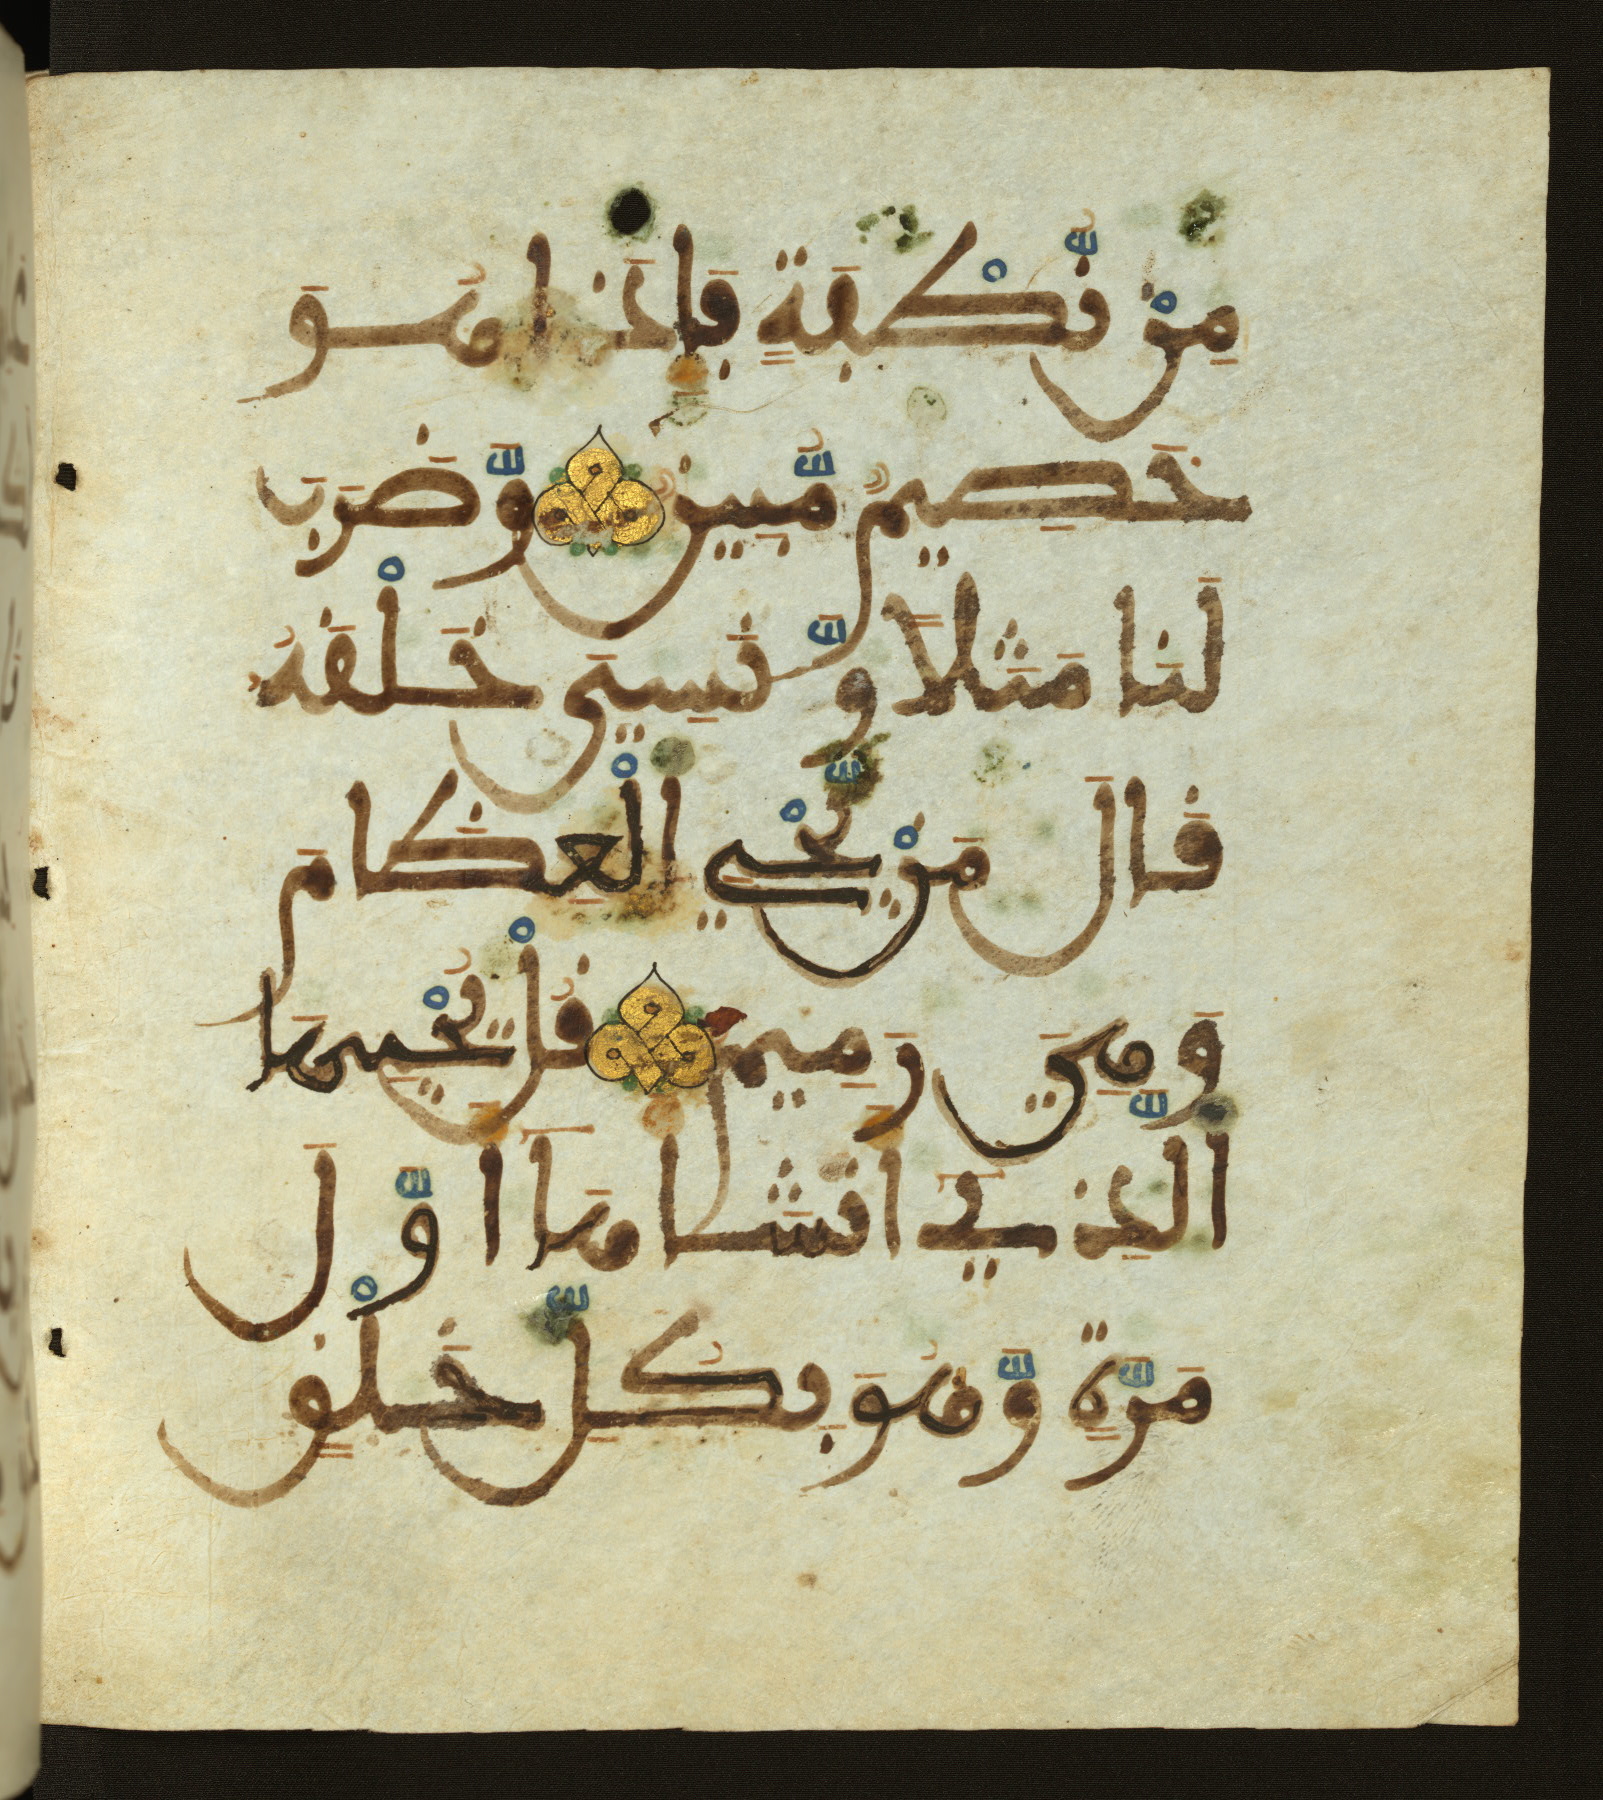 مِنْ نُّطْفَةٍ فَإِذَا هُوَ
خَصِيمٌ مُّبِينٌ وَّضَرَبَ
لَنَا مَثَلًا وَّنَسِيَ خَلْقَهُ
قَالَ مَنْ يُّحْيِي الْعِظَامَ
وَهِيَ رَمِيمٌ قُلْ يُحْيِيهَا
الَّذِي أَنشَأَهَا أَوَّلَ
مَرَّةٍ وَّهُوَ بِكُلِّ خَلْقٍ